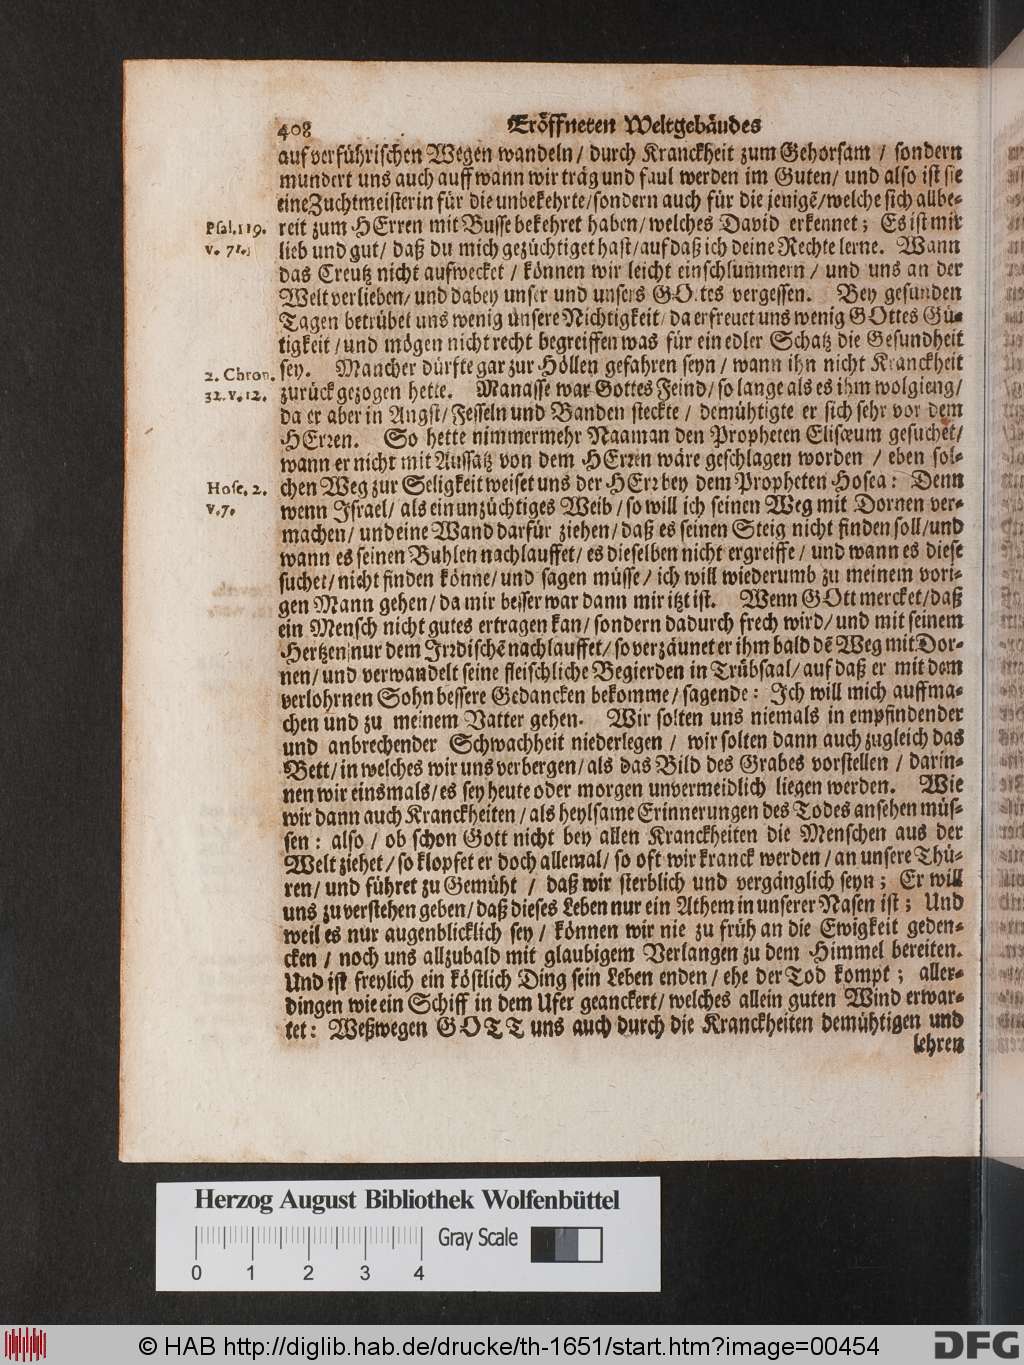 408 Eröffneten Weltgebäudes
auf verführischen Wegen wandeln / durch Kranckheit zum Gehorsam / sondern
mundert uns auch auff wann wir träg und faul werden im Guten / und also ist sie
eine Zuchtmeisterin für die unbekehrte / sondern auch für die jenigẽ / welche sich allbe-
Psal. 119.
v. 71.
reit zum HErren mit Busse bekehret haben / welches David erkennet ; Es ist mir
lieb und gut / daß du mich gezüchtiget hast / auf daß ich deine Rechte lerne. Wann
das Creutz nicht aufwecket / können wir leicht einschlummern / und uns an der
Welt verlieben / und dabey unser und unsers GOttes vergessen. Bey gesunden
Tagen betrübet uns wenig unsere Nichtigkeit / da erfreuet uns wenig GOttes Gü-
tigkeit / und mögen nicht recht begreiffen was für ein edler Schatz die Gesundheit
2. Chron.
32. v. 12.
sey. Mancher dürfte gar zur Höllen gefahren seyn / wann ihn nicht Kranckheit
zurück gezogen hette. Manasse war Gottes Feind / so lange als es ihm wolgieng /
da er aber in Angst / Fesseln und Banden steckte / demühtigte er sich sehr vor dem
HErren. So hette nimmermehr Naaman den Propheten Elisœum gesuchet /
wann er nicht mit Aussatz von dem HErren wäre geschlagen worden / eben sol-
Hose. 2.
v. 7.
chen Weg zur Seligkeit weiset uns der HErr bey dem Propheten Hosea : Denn
wenn Israel / als ein unzüchtiges Weib / so will ich seinen Weg mit Dornen ver-
machen / und eine Wand darfür ziehen / daß es seinen Steig nicht finden soll / und
wann es seinen Buhlen nachlauffet / es dieselben nicht ergreiffe / und wann es diese
suchet / nicht finden könne / und sagen müsse / ich will wiederumb zu meinem vori-
gen Mann gehen / da mir besser war dann mir itzt ist. Wenn GOtt mercket / daß
ein Mensch nicht gutes ertragen kan / sondern dadurch frech wird / und mit seinem
Hertzen nur dem Irrdischẽ nachlauffet / so verzäunet er ihm bald dẽ Weg mit Dor-
nen / und verwandelt seine fleischliche Begierden in Trübsaal / auf daß er mit dem
verlohrnen Sohn bessere Gedancken bekomme / sagende : Ich will mich auffma-
chen und zu meinem Vatter gehen. Wir solten uns niemals in empfindender
und anbrechender Schwachheit niederlegen / wir solten dann auch zugleich das
Bett / in welches wir uns verbergen / als das Bild des Grabes vorstellen / darin-
nen wir einsmals / es sey heute oder morgen unvermeidlich liegen werden. Wie
wir dann auch Kranckheiten / als heylsame Erinnerungen des Todes ansehen müs-
sen : also / ob schon Gott nicht bey allen Kranckheiten die Menschen aus der
Welt ziehet / so klopfet er doch allemal / so oft wir kranck werden / an unsere Thü-
ren / und führet zu Gemüht / daß wir sterblich und vergänglich seyn ; Er will
uns zuverstehen geben / daß dieses Leben nur ein Athem in unserer Nasen ist ; Und
weil es nur augenblicklich sey / können wir nie zu früh an die Ewigkeit geden-
cken / noch uns allzubald mit glaubigem Verlangen zu dem Himmel bereiten.
Und ist freylich ein köstlich Ding sein Leben enden / ehe der Tod kompt ; aller-
dingen wie ein Schiff in dem Ufer geanckert / welches allein guten Wind erwar-
tet : Weßwegen GOTT uns auch durch die Kranckheiten demühtigen und
lehren
Herzog August Bibliothek Wolfenbüttel
Gray Scale
0 1 2 3 4
© HAB http://diglib.hab.de/drucke/th-1651/start.htm?image=00454
DFG